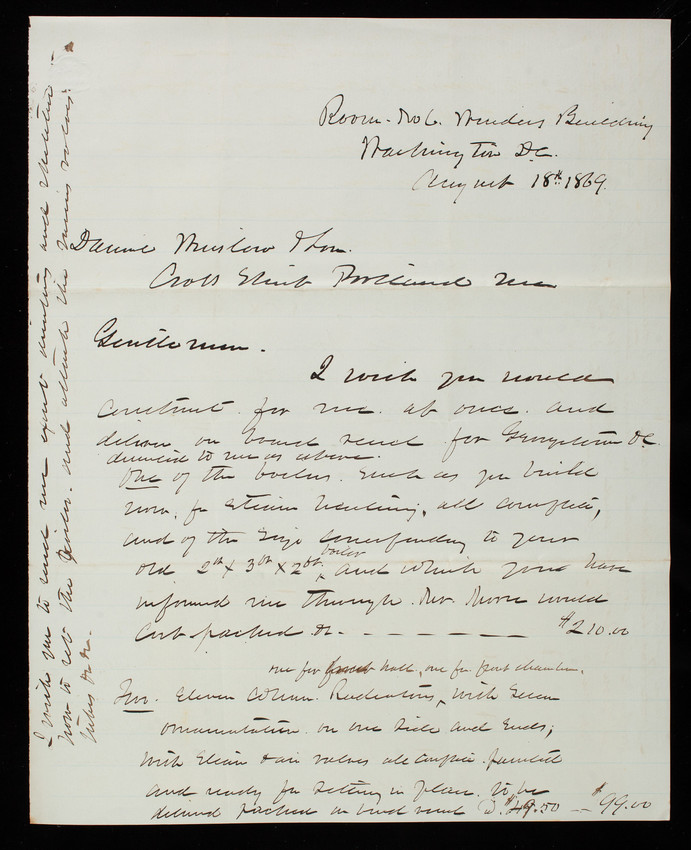 Room No 6. Winders Building
Washington D.C.
August 18th 1869.
Daniel Winslow & Son.
Cross Street Portland Me
Gentlemen.
I wish you would
construct for me at once and
deliver on board vessel for Georgetown D.C.
directed to me as above.
One of the boilers. such as you build
now, for steam heating, all complete,
and of the size corresponding to your
old 2ft x 3ft x 2ft boiler and which you have
informed me through Mr. Moore would
cost packed &c. $210.00
one for front hall, one for front chamber.
Two. Eleven Column Radiators, with Screen
ornamentation on one side and Ends;
with Steam & air valves all complete. painted
and ready for setting in place. to be
delivered packed on board vessel @ $49.50 — $99.00
I wish you to send me exact directions and sketches
how to set the boiler. and attach the various valves.
tubes &c &c.